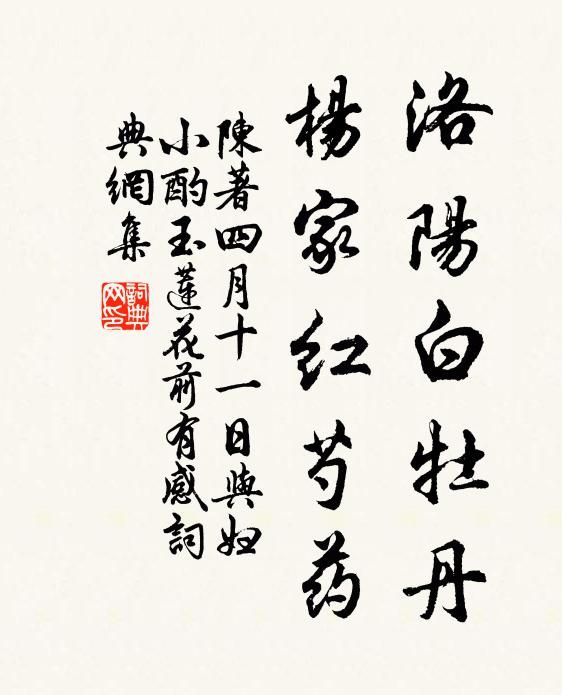 洛陽白牡丹
楊家红芍药
陳著四月十一日與妇
小酌玉蓮花前有感詞
典網集
詞典
网印